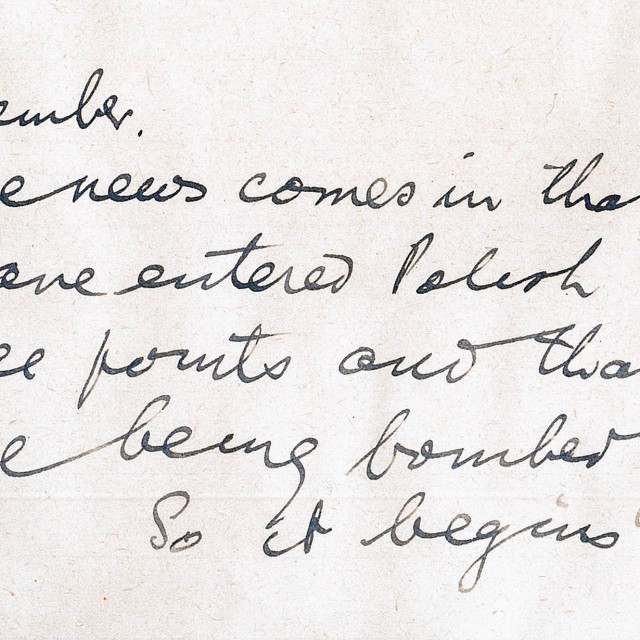 ember.
e news comes in tha
ave entered Polish
ee points and tha
e being bombed
So it begins